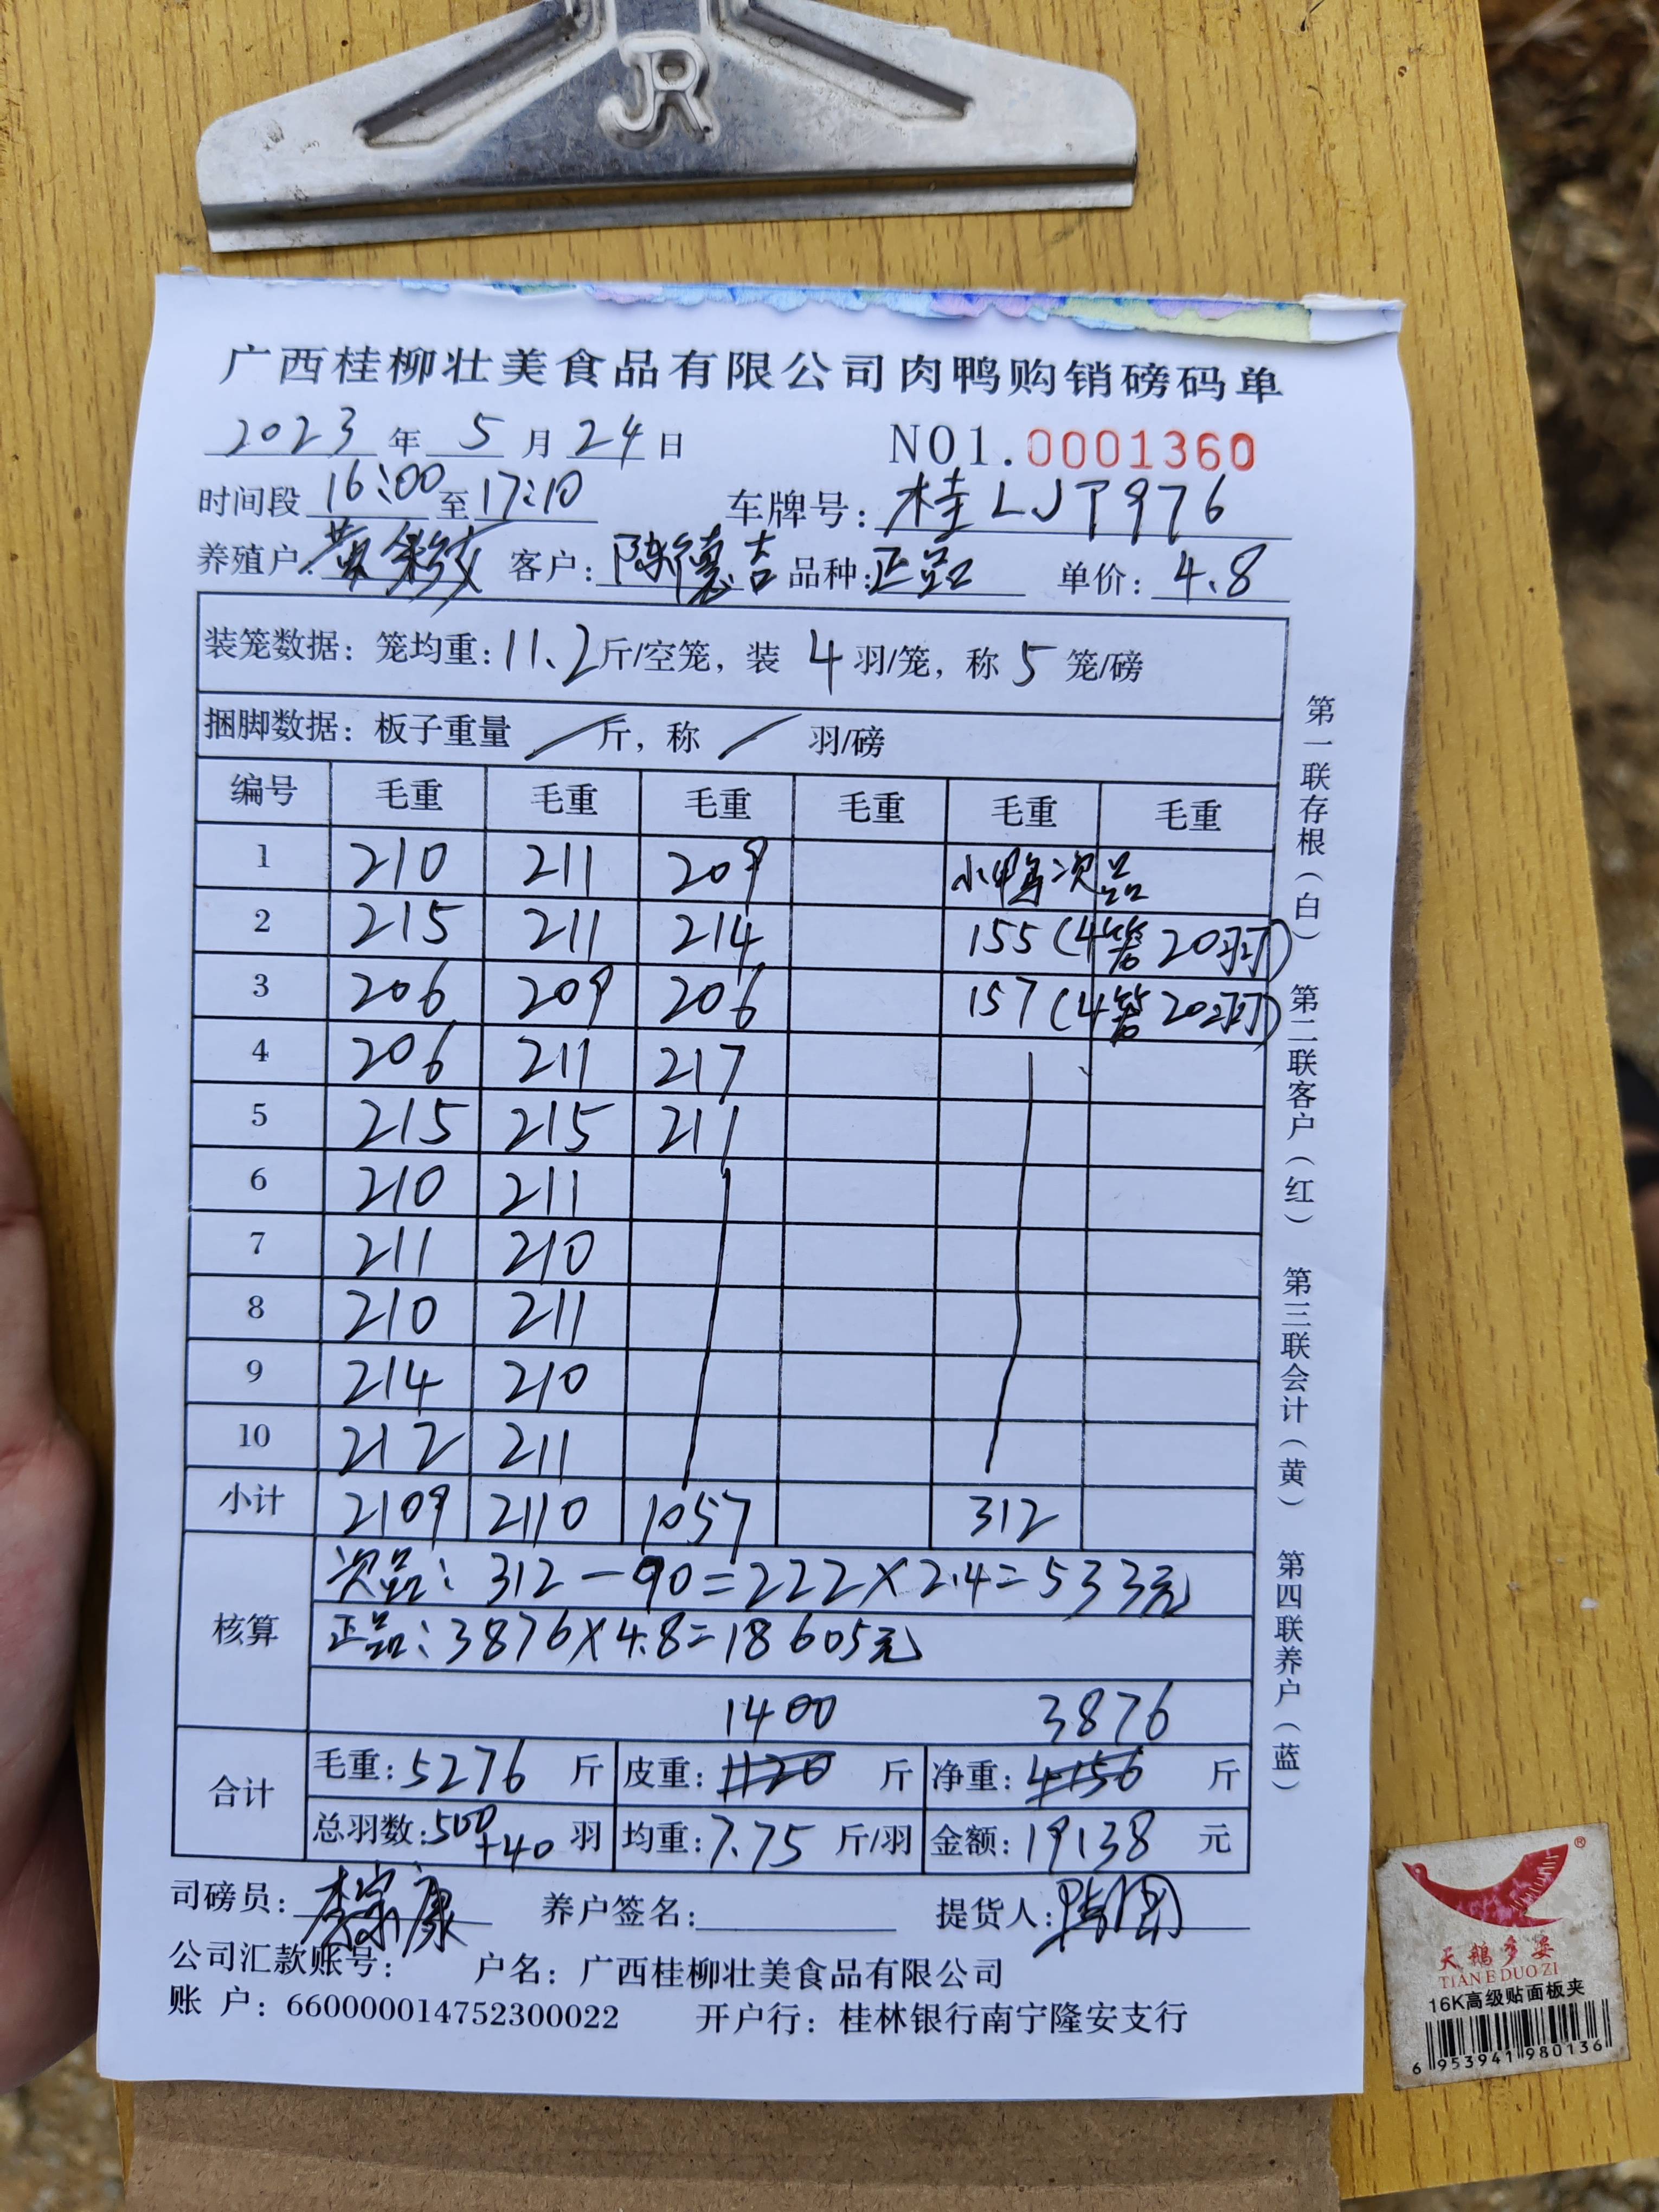 JR
广西桂柳壮美食品有限公司肉鸭购销磅码单
2023 年 5 月 24 日 NO1.0001360
时间段 16:00 至 17:10 车牌号: 桂LJT976
养殖户: 黄彩 客户: 陈德吉 品种: 正品 单价: 4.8
装笼数据: 笼均重: 11.2 斤/空笼, 装 4 羽/笼, 称 5 笼/磅
捆脚数据: 板子重量 / 斤, 称 / 羽/磅
编号 毛重 毛重 毛重 毛重 毛重 毛重
1 210 211 209 小鸭次品
2 215 211 214 155 (4笼 20羽)
3 206 209 206 157 (4笼 20羽)
4 206 211 217
5 215 215 211
6 210 211
7 211 210
8 210 211
9 214 210
10 212 211
小计 2109 2110 1057 312
核算 次品: 312-90=222×2.4=533元
正品: 3876×4.8=18605元
1400 3876
合计 毛重: 5276 斤 皮重: 1120 斤 净重: 4156 斤
总羽数: 500+40 羽 均重: 7.75 斤/羽 金额: 19138 元
司磅员: 李宗康 养户签名: 提货人:
公司汇款账号: 户名: 广西桂柳壮美食品有限公司
账 户: 660000014752300022 开户行: 桂林银行南宁隆安支行
第一联存根(白) 第二联客户(红) 第三联会计(黄) 第四联养户(蓝)
®
天鹅多姿
TIANEDUOZI
16K高级贴面板夹
6 953941 980136